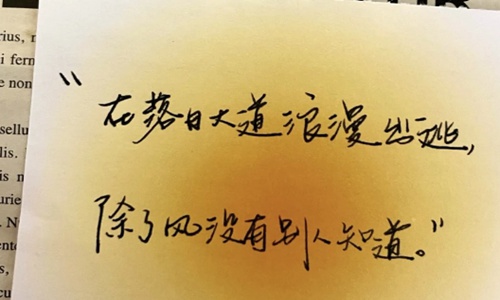 "在落日大道浪漫出逃,
除了风没有别人知道。"
rius,
i fern
e non
sellu
lis.
is n
urie
. N
ente
s,
cu